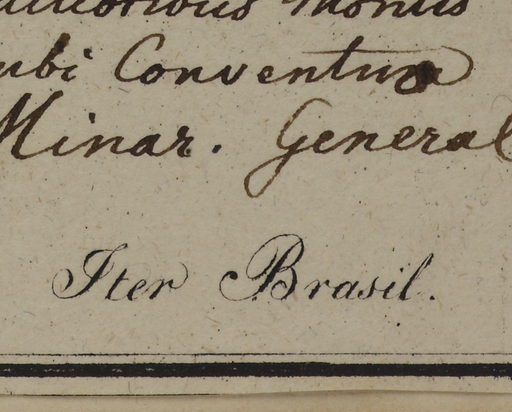 Montis
ubi Conventus
Minar. General
Iter Brasil.